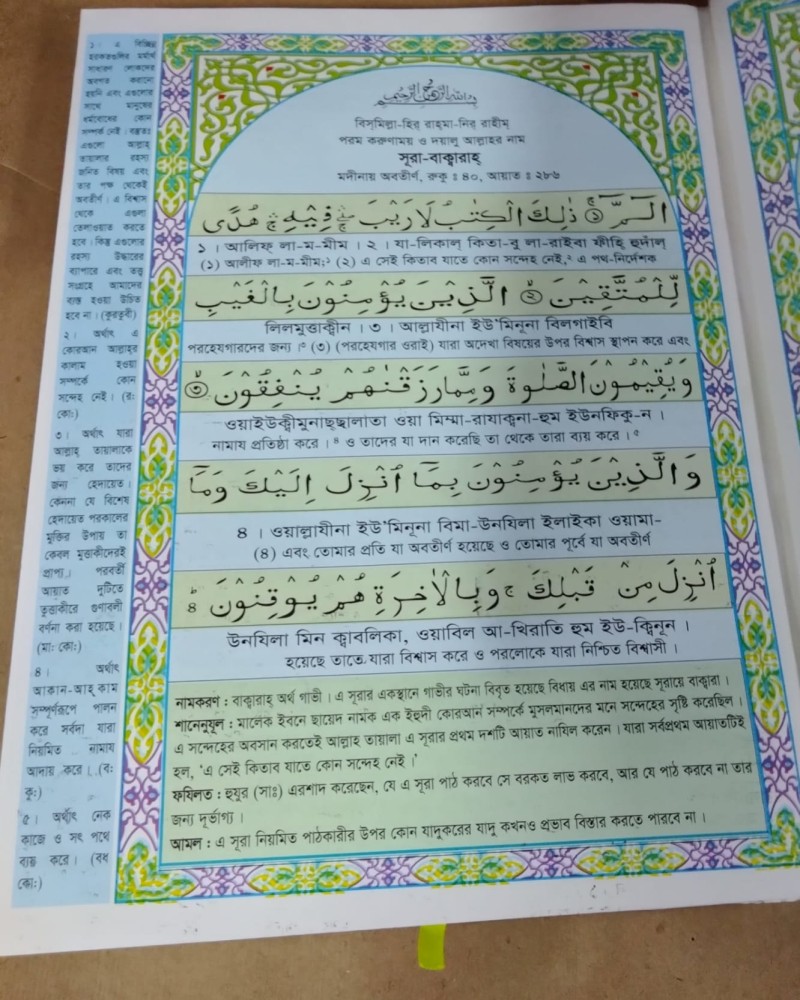 بسم الله الرحمن الرحيم
বিসমিল্লা-হির রাহমা-নির রাহীম্
পরম করুণাময় ও দয়ালু আল্লাহর নাম
সূরা-বাক্বারাহ্
মদীনায় অবতীর্ণ, রুকু : ৪০, আয়াত : ২৮৬
الٓمّٓ ۚ﴿١﴾ ذٰلِكَ الْكِتٰبُ لَا رَيْبَ ۛۖ فِيْهِ ۛۚ هُدًى
১ । আলিফ্ লা-ম-মীম । ২ । যা-লিকাল্ কিতা-বু লা-রাইবা ফীহি হুদাঁল্
(১) আলীফ লা-ম-মীম;১ (২) এ সেই কিতাব যাতে কোন সন্দেহ নেই,২ এ পথ-নির্দেশক
لِّلْمُتَّقِيْنَ ﴿٢﴾ الَّذِيْنَ يُؤْمِنُوْنَ بِالْغَيْبِ
লিলমুত্তাক্বীন । ৩ । আল্লাযীনা ইউ'মিনূনা বিলগাইবি
পরহেযগারদের জন্য ।৩ (৩) (পরহেযগার ওরাই) যারা অদেখা বিষয়ের উপর বিশ্বাস স্থাপন করে এবং
وَيُقِيْمُوْنَ الصَّلٰوةَ وَمِمَّا رَزَقْنٰهُمْ يُنْفِقُوْنَ ﴿٣﴾
ওয়াইউক্বীমুনাছ্ছালাতা ওয়া মিম্মা-রাযাক্বনা-হুম ইউনফিকু-ন ।
নামায প্রতিষ্ঠা করে ।৪ ও তাদের যা দান করেছি তা থেকে তারা ব্যয় করে ।৫
وَالَّذِيْنَ يُؤْمِنُوْنَ بِمَآ اُنْزِلَ اِلَيْكَ وَمَآ
৪ । ওয়াল্লাযীনা ইউ'মিনূনা বিমা-উনযিলা ইলাইকা ওয়ামা-
(৪) এবং তোমার প্রতি যা অবতীর্ণ হয়েছে ও তোমার পূর্বে যা অবতীর্ণ
اُنْزِلَ مِنْ قَبْلِكَ ۚ وَبِالْاٰخِرَةِ هُمْ يُوْقِنُوْنَ ٤
উনযিলা মিন ক্বাবলিকা, ওয়াবিল আ-খিরাতি হুম ইউ-ক্বিনূন ।
হয়েছে তাতে যারা বিশ্বাস করে ও পরলোকে যারা নিশ্চিত বিশ্বাসী ।
নামকরণ : বাক্বারাহ্ অর্থ গাভী । এ সূরার একস্থানে গাভীর ঘটনা বিবৃত হয়েছে বিধায় এর নাম হয়েছে সূরায়ে বাক্বারা ।
শানেনুযূল : মালেক ইবনে ছায়েদ নামক এক ইহুদী কোরআন সম্পর্কে মুসলমানদের মনে সন্দেহের সৃষ্টি করেছিল ।
এ সন্দেহের অবসান করতেই আল্লাহ তায়ালা এ সূরার প্রথম দশটি আয়াত নাযিল করেন । যারা সর্বপ্রথম আয়াতটিই
হল, 'এ সেই কিতাব যাতে কোন সন্দেহ নেই ।'
ফযিলত : হুযুর (সাঃ) এরশাদ করেছেন, যে এ সূরা পাঠ করবে সে বরকত লাভ করবে, আর যে পাঠ করবে না তার
জন্য দূর্ভাগ্য ।
আমল : এ সূরা নিয়মিত পাঠকারীর উপর কোন যাদুকরের যাদু কখনও প্রভাব বিস্তার করতে পারবে না ।
১ : এ বিচ্ছিন্ন
হরকতগুলির মর্মার্থ
সাধারণ লোকদের
অবগত করানো
হয়নি এবং এগুলোর
সাথে মানুষের
ধর্মবোধের কোন
সম্পর্ক নেই । বস্তুতঃ
এগুলো আল্লাহ্
তায়ালার রহস্য
জনিত বিষয় এবং
তার পক্ষ থেকেই
অবতীর্ণ । এ বিশ্বাস
থেকে এগুলা
তেলাওয়াত করতে
হবে । কিন্তু এগুলোর
রহস্য উদ্ধারের
ব্যাপারে এবং তত্ত্ব
সংগ্রহে আমাদের
ব্যস্ত হওয়া উচিত
হবে না । (কুরতুবী)
২ । অর্থাৎ এ
কোরআন আল্লাহর
কালাম হওয়া
সম্পর্কে কোন
সন্দেহ নেই । (রঃ
কোঃ)
৩ । অর্থাৎ যারা
আল্লাহ্ তায়ালাকে
ভয় করে তাদের
জন্য হেদায়েত ।
কেননা যে বিশেষ
হেদায়েত পরকালের
মুক্তির উপায় তা
কেবল মুত্তাকীদেরই
প্রাপ্য । পরবর্তী
আয়াত দুটিতে
তৃত্তাকীরে গুণাবলী
বর্ণনা করা হয়েছে ।
(মাঃ কোঃ)
৪ । অর্থাৎ
আকান-আহ্ কাম
সম্পূর্ণরূপে পালন
করে সর্বদা যারা
নিয়মিত নামায
আদায় করে । (বঃ
কুঃ)
৫ । অর্থাৎ নেক
কাজে ও সৎ পথে
ব্যয় করে । (বধ
কোঃ)